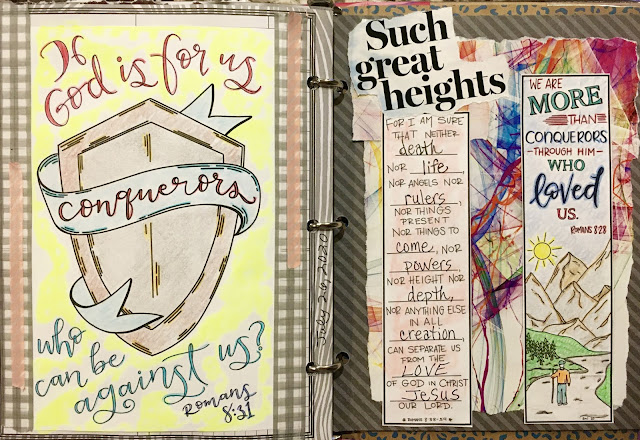 If
God is for us
conquerors
who
can be
against us?
Romans
8:31
July 26 2020
Such
great
heights
FOR I AM SURE
THAT NEITHER
death
NOR life,
NOR ANGELS NOR
rulers,
NOR THINGS
PRESENT
NOR THINGS TO
come, NOR
powers,
NOR HEIGHT NOR
depth,
NOR ANYTHING ELSE
IN ALL
creation,
CAN SEPARATE US
FROM THE
LOVE
OF GOD IN CHRIST
Jesus
OUR LORD.
ROMANS 8:38-39
WE ARE
MORE
THAN
CONQUERORS
THROUGH HIM
WHO
loved
US.
ROMANS 8:28